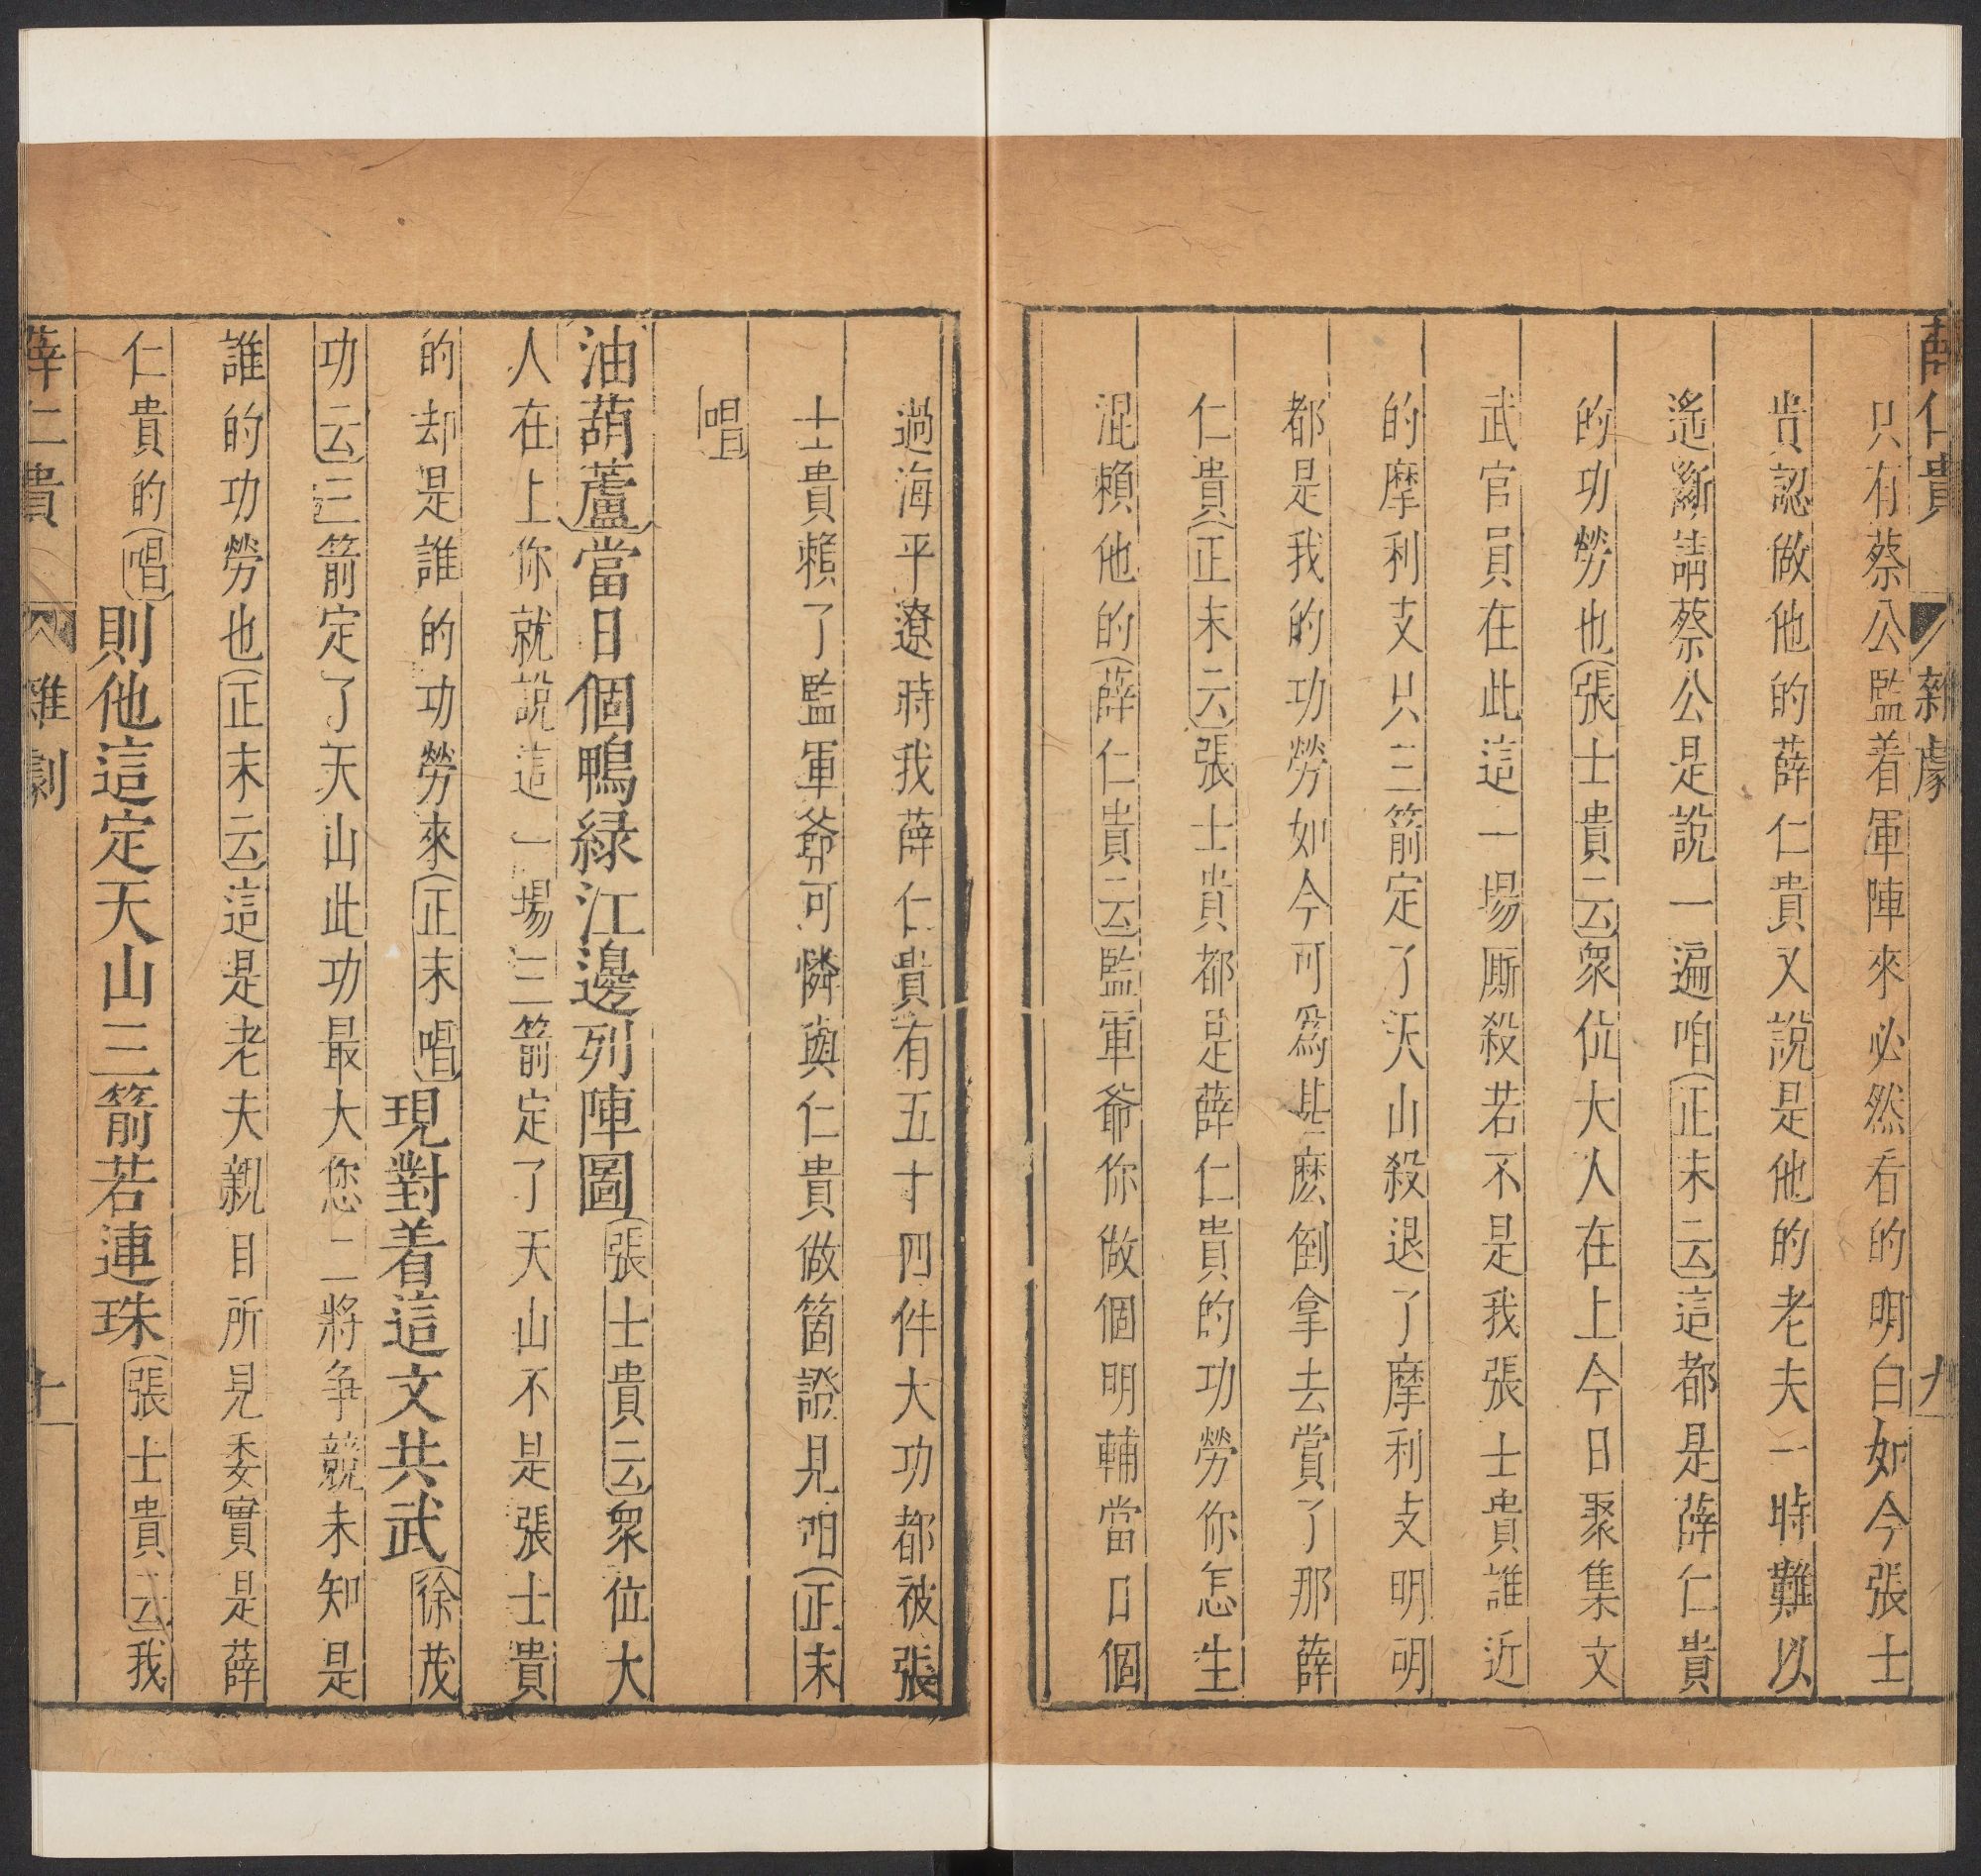 薛仁貴 雜劇 九
只有蔡公監着軍陣來必然看的明白如今張士
貴認做他的薛仁貴又說是他的老夫一時難以
遙斷請蔡公是說一遍咱正末云這都是薛仁貴
的功勞也張士貴云衆位大人在上今日聚集文
武官員在此這一場厮殺若不是我張士貴誰近
的摩利支只三箭定了天山殺退了摩利支明明
都是我的功勞如今可爲甚麽倒拿去賞了那薛
仁貴正末云張士貴都是薛仁貴的功勞你怎生
混賴他的薛仁貴云監軍爺你做個明輔當口個
過海平遼時我薛仁貴有五十四件大功都被張
士貴賴了監軍爺可憐與仁貴做箇證見咱正末
唱
油葫蘆當日個鴨綠江邊列陣圖張士貴云衆位大
人在上你就說這一場三箭定了天山不是張士貴
的却是誰的功勞來正末唱現對着這文共武徐茂
功云三箭定了天山此功最大您二將爭競未知是
誰的功勞也正末云這是老夫親目所見委實是薛
仁貴的唱則他這定天山三箭若連珠張士貴云我
薛仁貴 雜劇 十